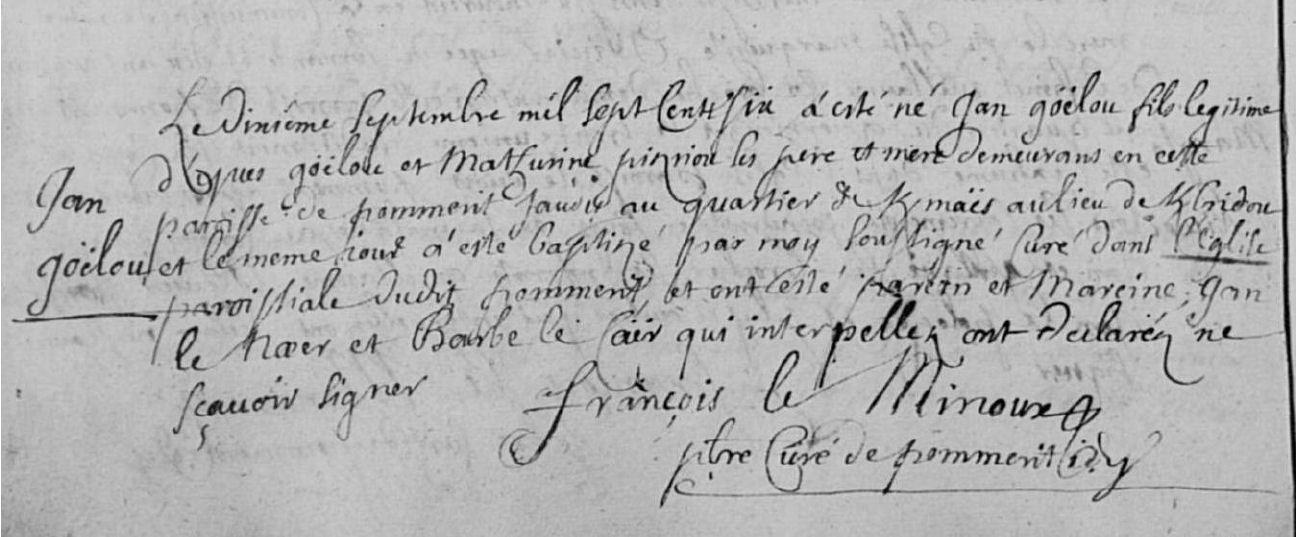 Le dixiême septembre mil sept cent six à esté né Jan goëlou fils legitime
d'yves goëlou et Mathurine pignion les pere et mere demeurans en cette
Jan
paroisse de pomment au quartier de Kmaës au lieu de
goëlou
et le meme jour à esté baptizé par moy soussigné Curé dans l'Eglise
paroissiale dudit pommerit, et ont esté parein et Mareine, Jan
le et Barbe le Caër qui interpellez ont declaréz ne
sçavoir signer françois le Minoux
pbre Curé de pommerit